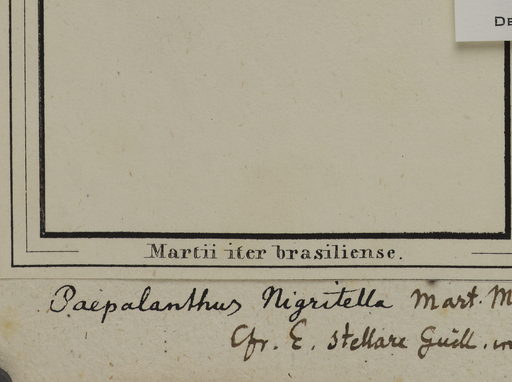 DE
Martii iter brasiliense.
Paepalanthus Nigritella Mart. M
Cfr. E. stellare Guill. in